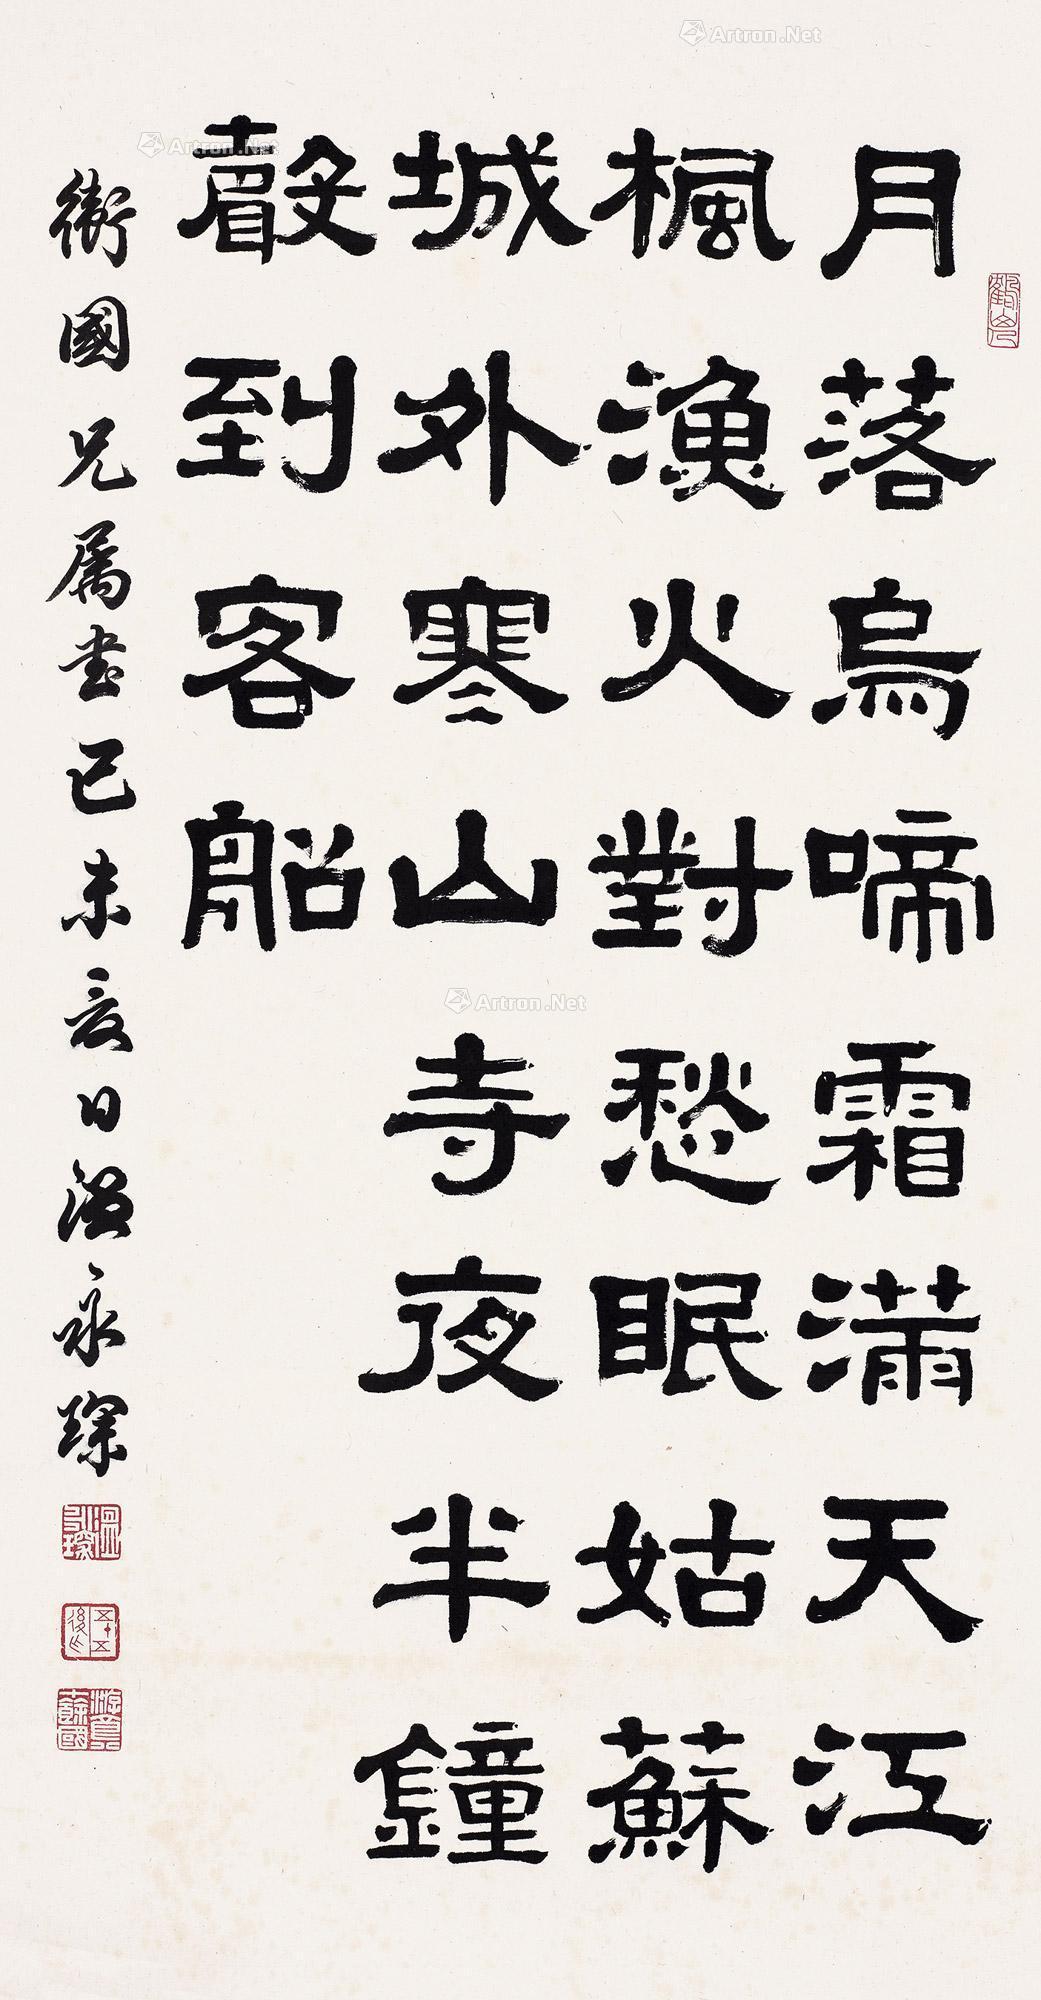 月落烏啼霜滿天江
楓漁火對愁眠姑蘇
城外寒山寺夜半鐘
聲到客船
衛國兄属書己未夏日溫永琛
溫永琛
五十五後作
Artron.Net
Artron.Net
Artron.Net